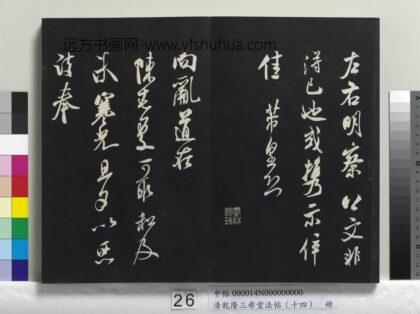 远方书画网-www.yfshuhua.com
左右明察以文非
得已也或携示伴
佳 芾皇恐
向亂道在
陳
可取知及
未 襄
旦夕以惠
詩奉
26
中帖 000014N000000000
清乾隆三希堂法帖（十四） 冊